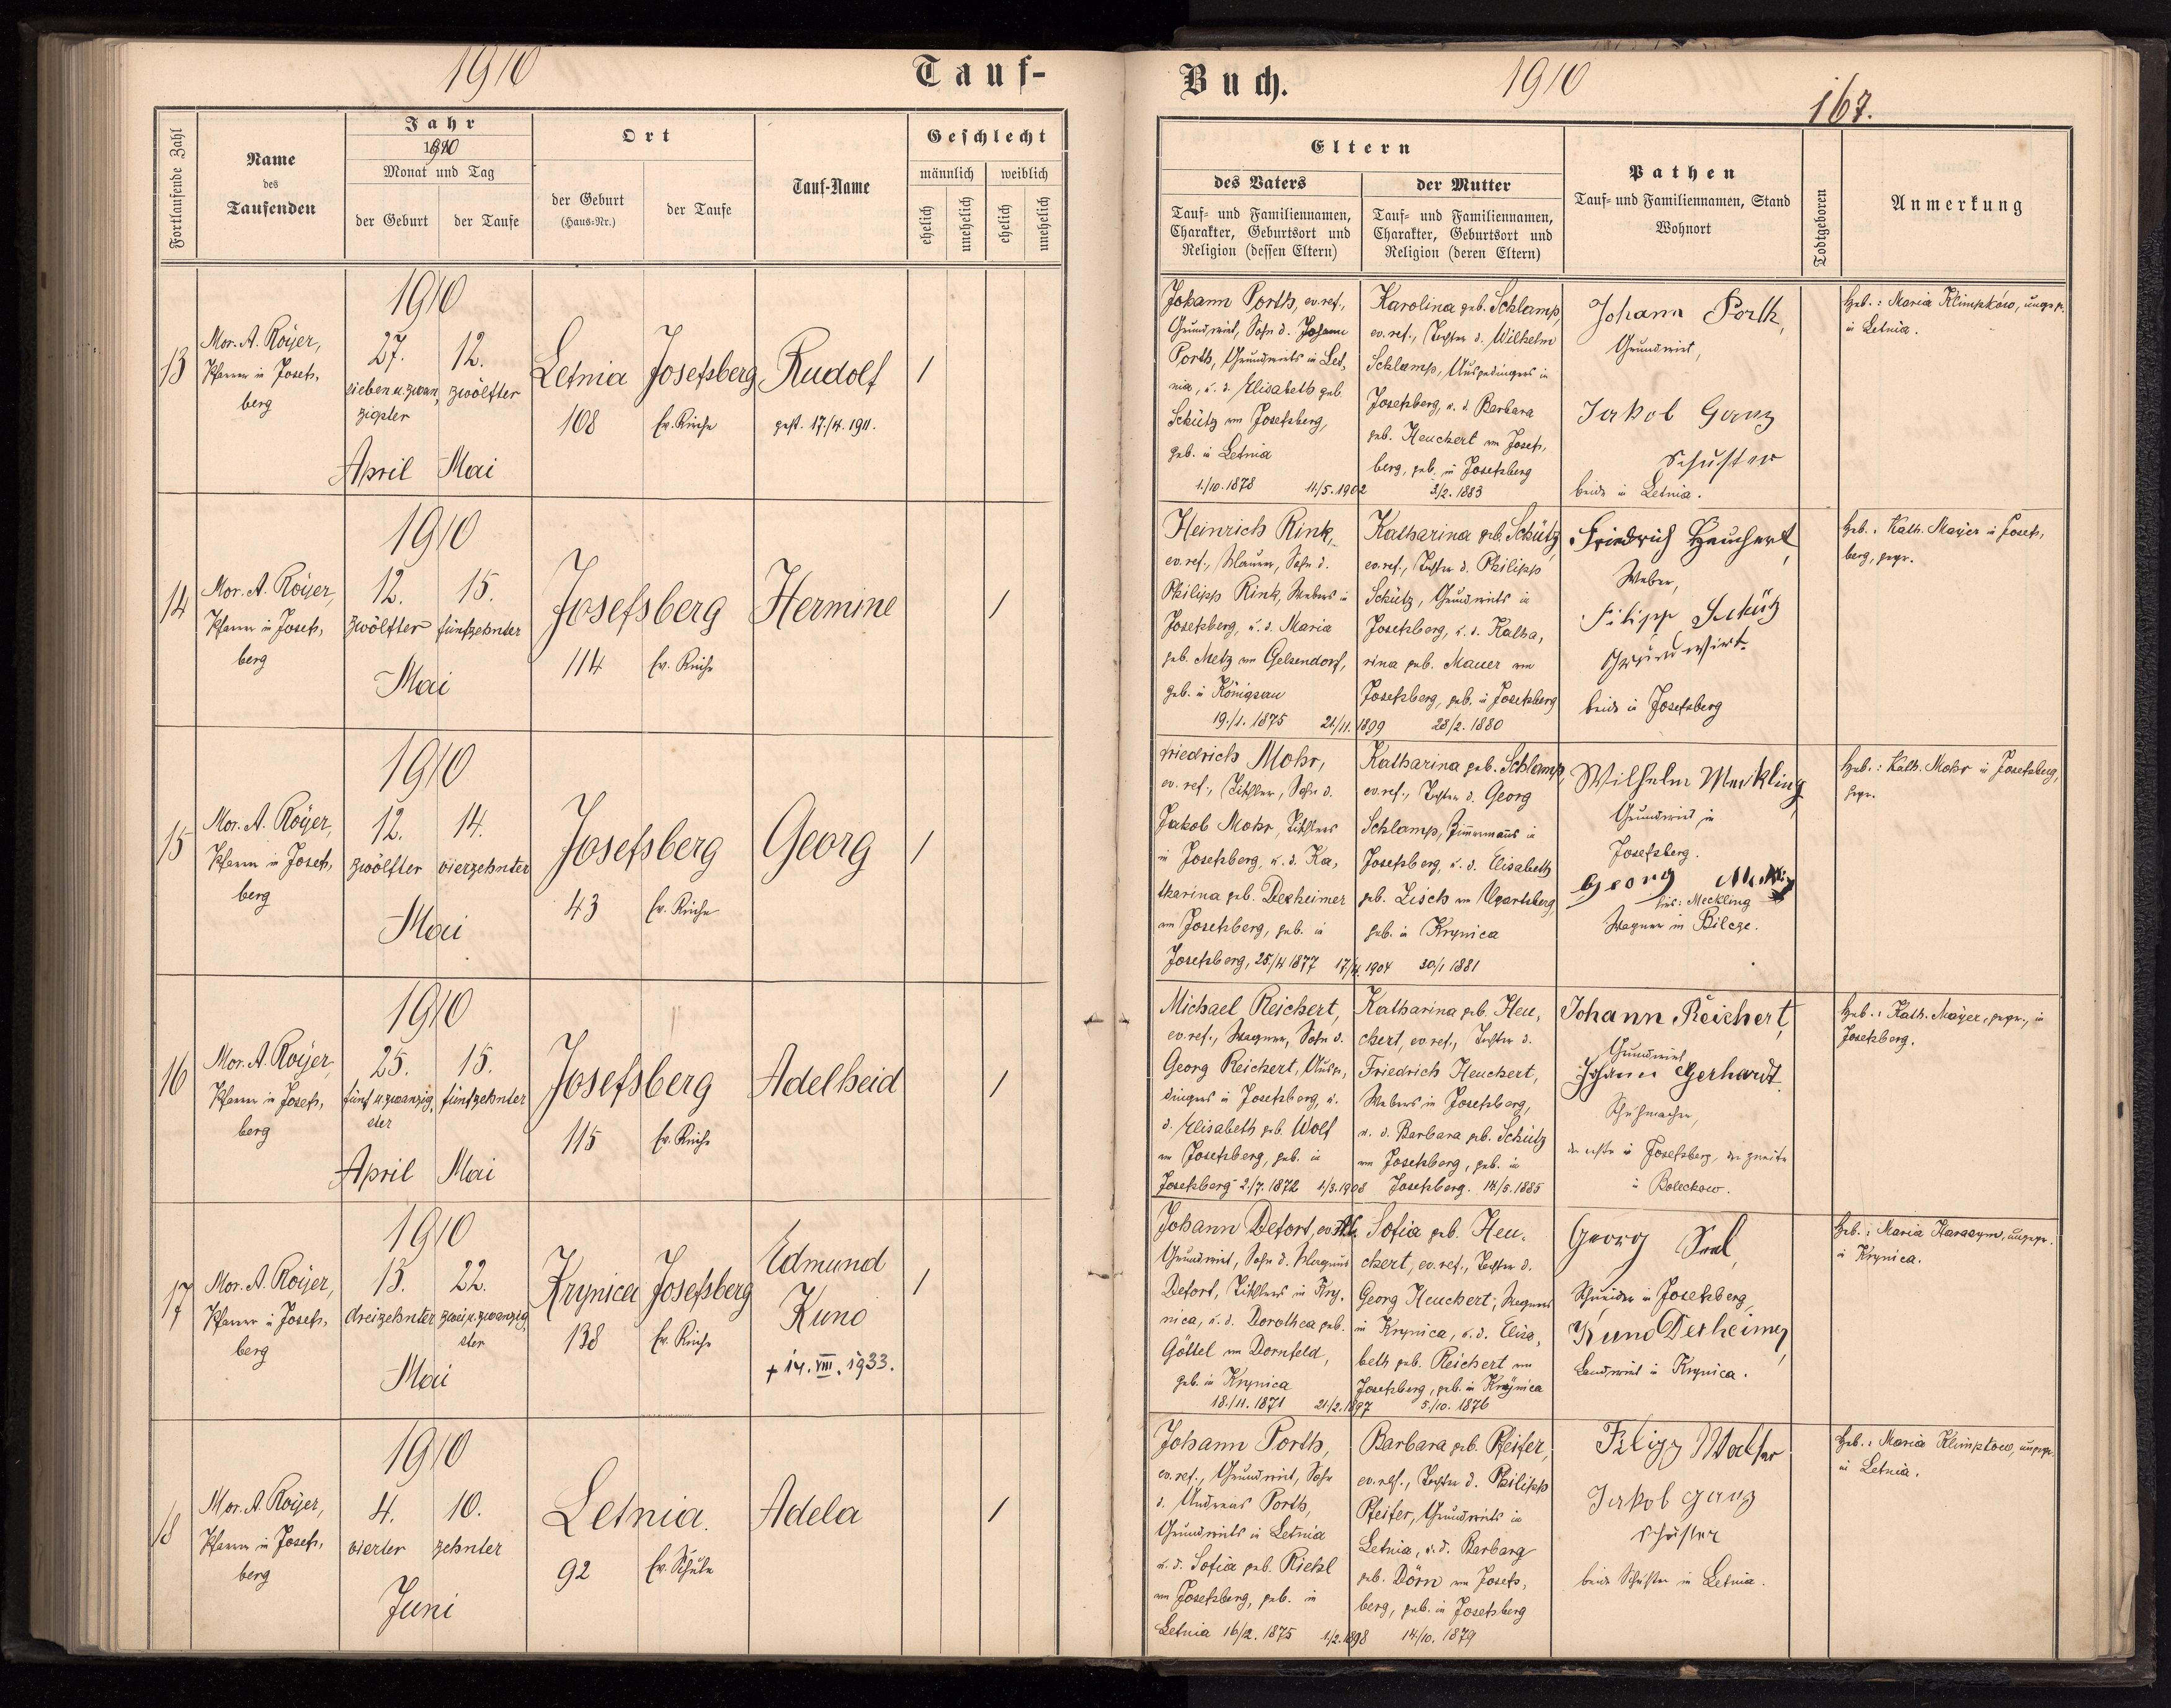 1910
Tauf-
Fortlaufende Zahl
Name
des
Taufenden
Jahr
1910
Monat und Tag
der Geburt
der Taufe
Ort
der Geburt
(Haus-Nr.)
der Taufe
Tauf-Name
Geschlecht
männlich
weiblich
ehelich
unehelich
ehelich
unehelich
13
Mor. A. Royer,
Pfarrer in Josefs-
berg
1910
27. 12.
sieben u. zwan- zwölfter
zigster
April Mai
Letnia Josefsberg
108 Ev. Kirche
Rudolf
gest. 17./4. 1911.
/
14
Mor. A. Royer,
Pfarrer in Josefs-
berg
1910
12. 15.
zwölfter fünfzehnter
Mai
Josefsberg
114 Ev. Kirche
Hermine
/
15
Mor. A. Royer,
Pfarrer in Josefs-
berg
1910
12. 14.
zwölfter vierzehnter
Mai
Josefsberg
43 Ev. Kirche
Georg
/
16
Mor. A. Royer,
Pfarrer in Josefs-
berg
1910
25. 15.
fünf u. zwanzig- fünfzehnter
ster
April Mai
Josefsberg
115 Ev. Kirche
Adelheid
/
17
Mor. A. Royer,
Pfarrer in Josefs-
berg
1910
13. 22.
dreizehnter zwei u. zwanzig-
ster
Mai
Krynica Josefsberg
138 Ev. Kirche
Edmund
Kuno
+ 14. VIII. 1933.
/
18
Mor. A. Royer,
Pfarrer in Josefs-
berg
1910
4. 10.
vierter zehnter
Juni
Letnia.
92 Ev. Schule
Adela
/
Buch.
1910
167.
Eltern
des Vaters
Tauf- und Familiennamen,
Charakter, Geburtsort und
Religion (dessen Eltern)
der Mutter
Tauf- und Familiennamen,
Charakter, Geburtsort und
Religion (deren Eltern)
Pathen
Tauf- und Familiennamen, Stand
Wohnort
Todtgeboren
Anmerkung
Johann Porth, ev. ref.,
Grundwirt, Sohn d. Johann
Porth, Grundwirts in Let-
nia, u. d. Elisabeth geb.
Schütz von Josefsberg,
geb. in Letnia
1./10. 1878 11/5. 1902
Karolina geb. Schlamp,
ev. ref., Tochter d. Wilhelm
Schlamp, Ausgedingers in
Josefsberg, u. d. Barbara
geb. Heuchert von Josefs-
berg, geb. in Josefsberg
3/2. 1883
Johann Porth,
Grundwirt,
Jakob Ganz
Schuster
beide in Letnia.
Heb.: Maria Klimpków, ungepr.
in Letnia.
Heinrich Rink,
ev. ref., Maurer, Sohn d.
Philipp Rink, Webers in
Josefsberg, u. d. Maria
geb. Metz von Gelsendorf,
geb. in Königsau
19./1. 1875 21/11. 1899
Katharina geb. Schütz,
ev. ref., Tochter d. Philipp
Schütz, Grundwirts in
Josefsberg, u. d. Katha-
rina geb. Mauer von
Josefsberg, geb. in Josefsberg
28/2. 1880
Friedrich Heuchert,
Weber,
Filipp Schütz
Grundwirt.
beide in Josefsberg
Heb.: Kath. Mayer in Josefs-
berg, gepr.
Friedrich Mohr,
ev. ref., Tischler, Sohn d.
Jakob Mohr, Tischlers
in Josefsberg, u. d. Ka-
tharina geb. Derheimer
von Josefsberg, geb. in
Josefsberg, 25./4 1877 17/4. 1904
Katharina geb. Schlamp,
ev. ref., Tochter d. Georg
Schlamp, Zimmermanns in
Josefsberg, u. d. Elisabeth
geb. Lisch von Ugartsberg,
geb. in Krynica
30/1 1881
Wilhelm Meckling
Grundwirt in
Josefsberg.
Georg
hier: Meckling
Wagner in Bilcze.
Heb.: Kath. Mohr in Josefsberg,
gepr.
Michael Reichert,
ev. ref., Wagner, Sohn d.
Georg Reichert, Ausge-
dingers in Josefsberg, u.
d. Elisabeth geb. Wolf
von Josefsberg, geb. in
Josefsberg 2./7. 1872 1/3. 1908
Katharina geb. Heu-
chert, ev. ref., Tochter d.
Friedrich Heuchert,
Webers in Josefsberg,
u. d. Barbara geb. Schütz
von Josefsberg, geb. in
Josefsberg. 14/5. 1885
Johann Reichert,
Grundwirt
Johann Gerhardt.
Schuhmacher,
der erste in Josefsberg, der zweite
in Bolechow.
Heb.: Kath. Mayer, gepr., in
Josefsberg.
Johann Defort, ev.
Grundwirt, Sohn d. Magnus
Defort, Tischlers in Kry-
nica, u. d. Dorothea geb.
Göttel von Dornfeld,
geb. in Krynica
18./11. 1871 21/2. 1897
Sofia geb. Heu-
chert, ev. ref., Tochter d.
Georg Heuchert, Wagners
in Krynica, u. d. Elisa-
beth geb. Reichert von
Josefsberg, geb. in Krynica
5./10. 1876
Georg
Schneider in Josefsberg
Kuno Derheimer,
Landwirt in Krynica.
Heb.: Maria Harasym, ungepr.
in Krynica.
Johann Porth,
ev. ref., Grundwirt, Sohn
d. Andreas Porth,
Grundwirts in Letnia
u. d. Sofia geb. Riehl
von Josefsberg, geb. in
Letnia 16/2. 1875 1./2. 1898
Barbara geb. Pfeifer,
ev. ref., Tochter d. Philipp
Pfeifer, Grundwirts in
Letnia, u. d. Barbara
geb. Dörn von Josefs-
berg, geb. in Josefsberg
14/10. 1879
Filipp
Jakob Ganz
Schuster
beide Schuster in Letnia.
Heb.: Maria Klimpków, ungepr.
in Letnia.